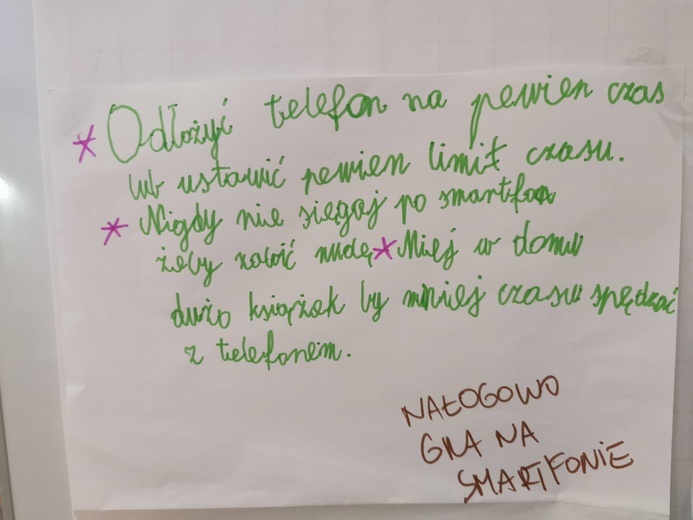 * Odłożyć telefon na pewien czas
lub ustawić pewien limit czasu.
* Nigdy nie sięgaj po smartfon
żeby zabić nudę * Miej w domu
dużo książek by mniej czasu spędzać
z telefonem.
NAŁOGOWO
GRA NA
SMARTFONIE